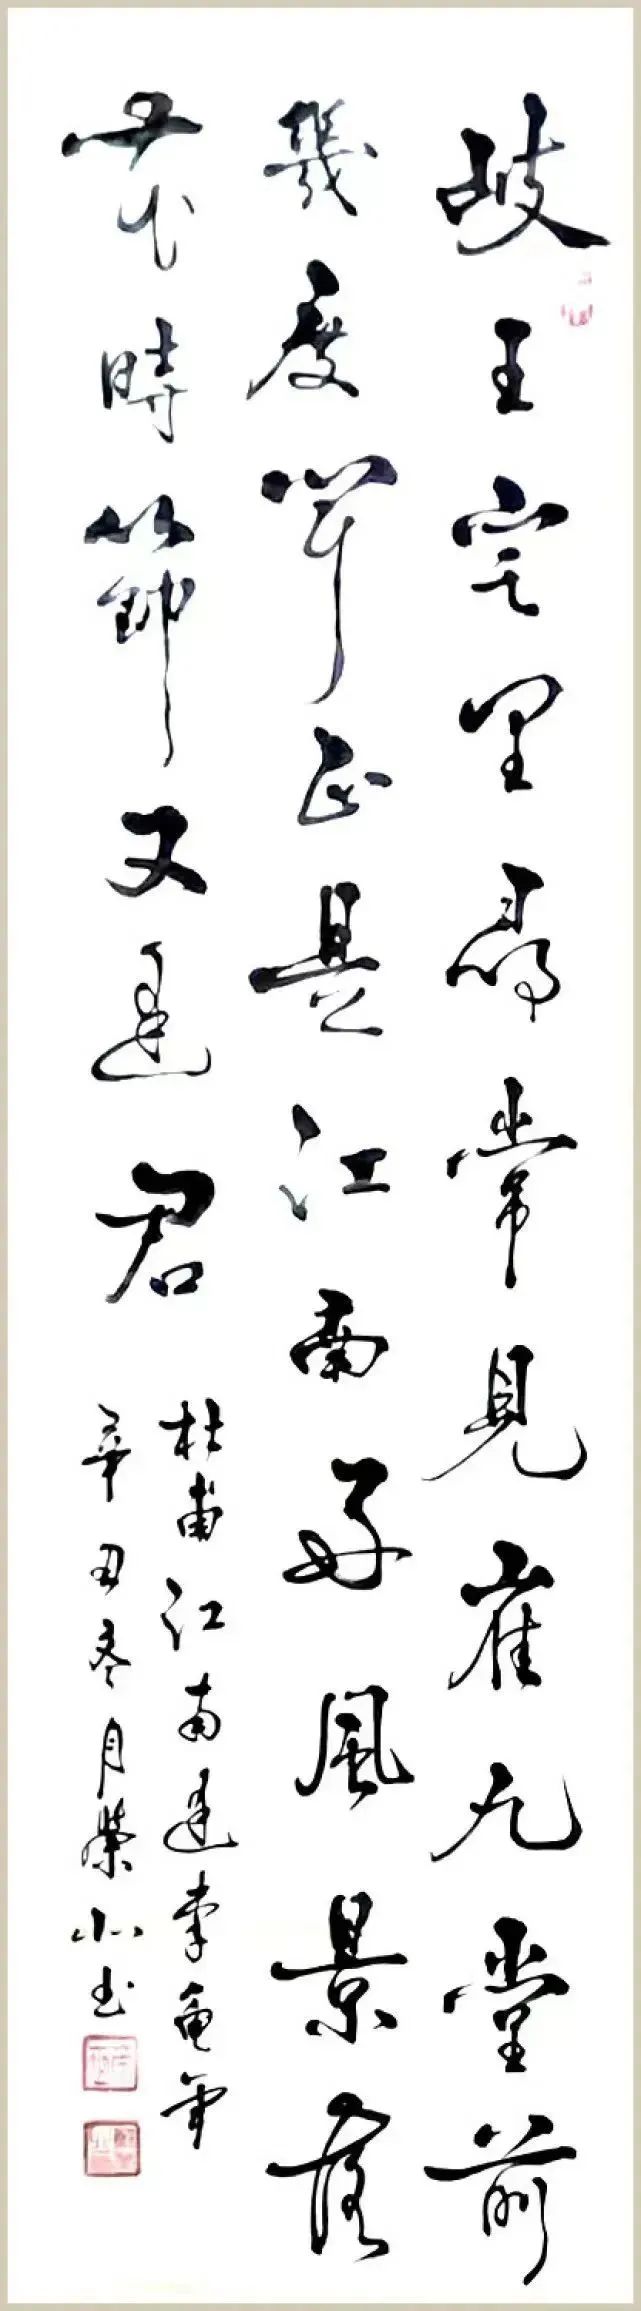 岐王宅里尋常見崔九堂前
幾度聞正是江南好風景落
花時節又逢君
杜甫江南逢李龜年
辛丑冬月榮书